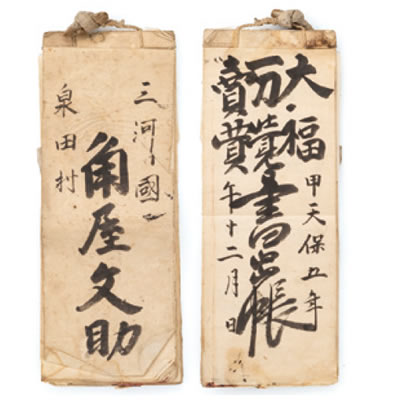 三河國
角屋文助
泉田村
大福
甲天保五年
万覺書出帳
賣
午十二月日